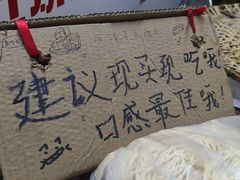 建议现买现吃哦
口感最佳哦!